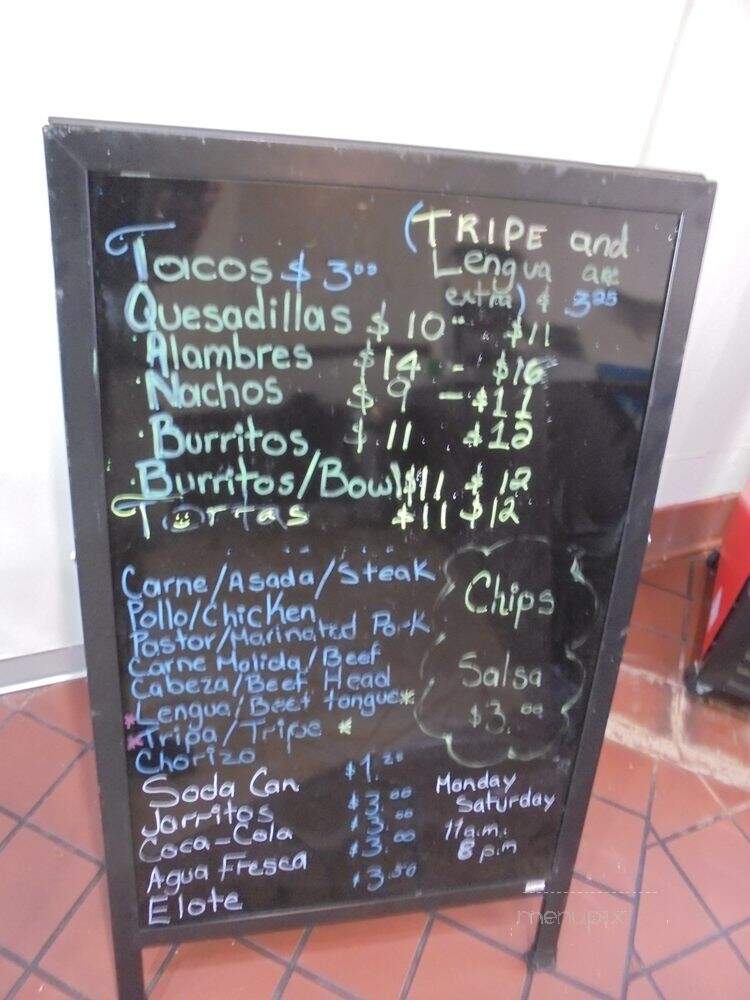 (TRIPE and
Tacos $ 3.00 Lengua are
extra) $ 3.25
Quesadillas $ 10 - $11
Alambres $14 - $16
Nachos $ 9 - $11
Burritos $ 11 $12
Burritos/Bowl $11 $ 12
Tortas $11 $12
Carne/Asada/Steak
Pollo/Chicken Chips
Pastor/Marinated Pork
Carne Molida/Beef Salsa
Cabeza/Beef Head
*Lengua/Beef tongue* $3.00
*Tripa/Tripe *
Chorizo
Soda Can $1. Monday
Jarritos $3.00 Saturday
Coca-Cola $3.00 11 a.m.
Agua Fresca $3.00 8 p.m
Elote $3.50
menupix